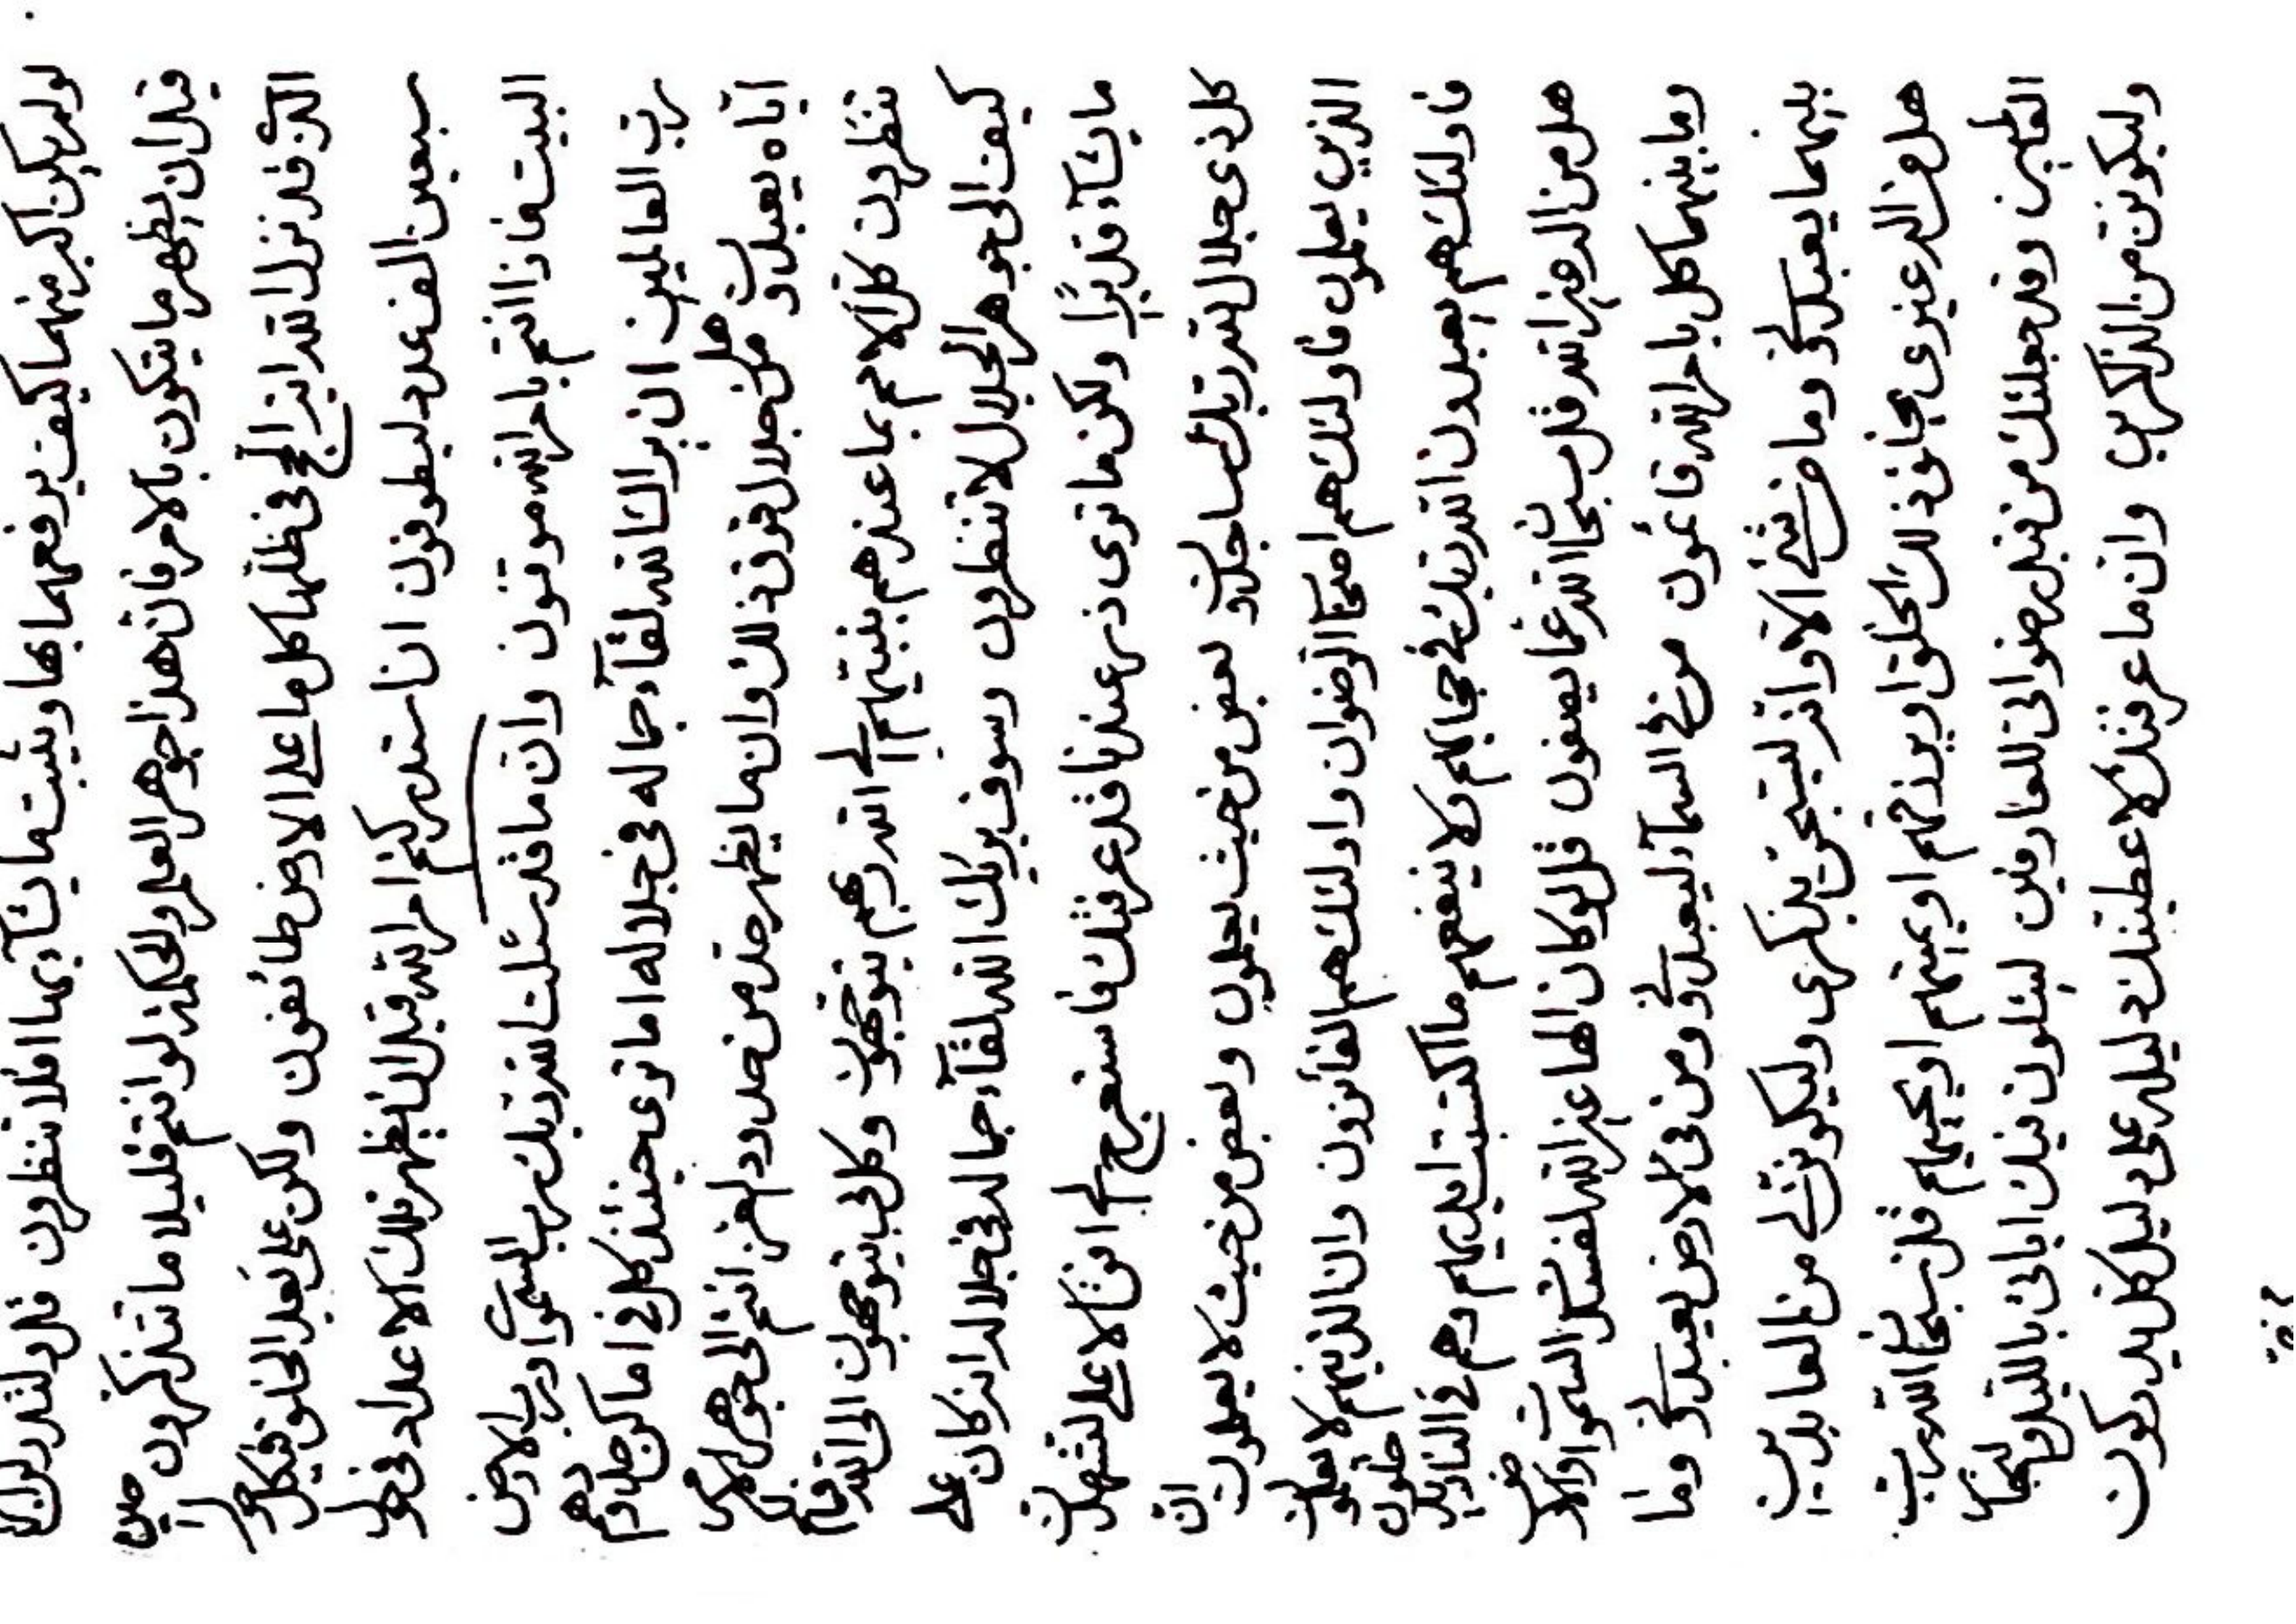 لو لم يكن اكبر منهما كيف يرفعهما بها ويثبت ما يشآء بهما افلا تنظرون قل
قبل ان يظهر ما يتكون بالامر فان هذا جوهر العلم والحكمة لو انتم قليلا ما تتذكرون
قد نزل الله الحج في ظلها كل ما على الارض طائفون ولكن على بعد الخلق فيكل
سبعين الف عدد ليطوفون ان استدركتم امر الله قبل ان يظهر تلك الاعداد في حول
البيت فاذا انتم بامر الله موقنون وان ما قد سئلت الله ربك رب السموات ورب الارض
رب العالمين ان الله لقآء جماله في جلاله اما ترى حينئذ كل في اماكن
اياه يعبدون هل من جلال فوق ذلك وان ما يظهر حد من حدود العز انتم الى جوهر
تنظرون كل الامم بما عندهم بنبيهم الى الله ربهم يتوجهون وكل بي يتوجهون الى الله
كيف الى جوهر الجلال لا تنظرون وسوف يريك الله لقآء جماله في جلاله انه كان على
ما يشآء قديرا ولكن ما ترى ذره عندنا قد عرفتك فاستعرج الى افق الاعلى لتشهدن
كل ذي جلال لله ربك ساجدون بعض من حيث يعلمون وبعض من حيث لا يعلمون ان
الذين يعلمون فاولئك هم اصحاب الرضوان واولئك هم الفائزون وان الذينهم لا يعلمون
فاولئك هم يعبدون الله ربك في حجابهم ولا ينفعهم ما اكتسبت ايديهم وهم في النار
هل من اله غير الله قل سبحان الله عما يصفون قل لو كان الها غير الله لفسدت السموات والارض
وما بينهما كل بامر الله قائمون من في السمآء ليعبدني ومن في الارض يعبدني وما
بينهما يعبدني وما من شيء الا وانه ليسبحن بذكري وليكونن لي من العابدين
هل من اله غيري يخلق ذلك الخلق او يرزقهم او يميتهم او يحييهم قل سبحان الله رب
العالمين وقد جعلتك من قبل رضواني للعارفين ليتلون فيك اياتي بالليل والنهار
وليكونن من الذاكرين وان ما عرفتك لاعطيتك دليله على دليل كل يدركون